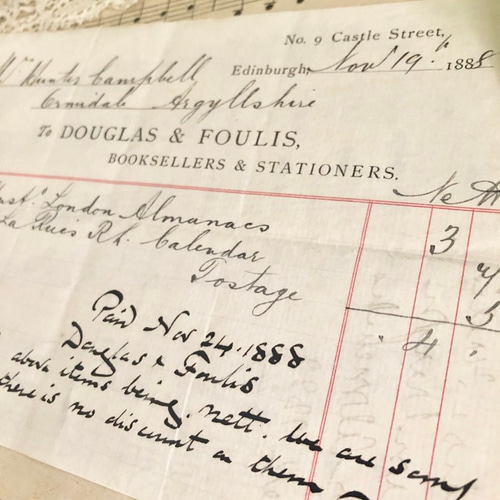 No. 9 Castle Street,
Edinburgh, Nov 19th 1888
Hunter Campbell
Ormidale Argyllshire
To DOUGLAS & FOULIS,
BOOKSELLERS & STATIONERS.
Nett
London Almanacs 3
La Rues Calendar
Postage 5
4
Paid Nov 24. 1888
Douglas & Foulis
above items being nett. We are sorry
there is no discount on them